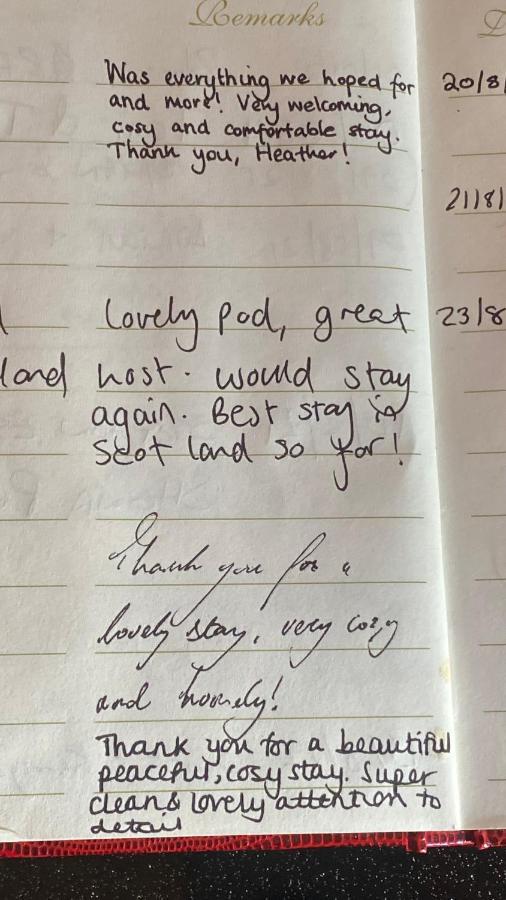 Remarks
Was everything we hoped for
20/8/
and more! Very welcoming,
cosy and comfortable stay.
Thank you, Heather!
21/8/
Lovely pod, great
23/8
land
host. would stay
again. Best stay in
Scotland so far!
Thank you for a
lovely stay, very cozy
and homely!
Thank you for a beautiful
peaceful, cosy stay. Super
clean & lovely attention to
detail